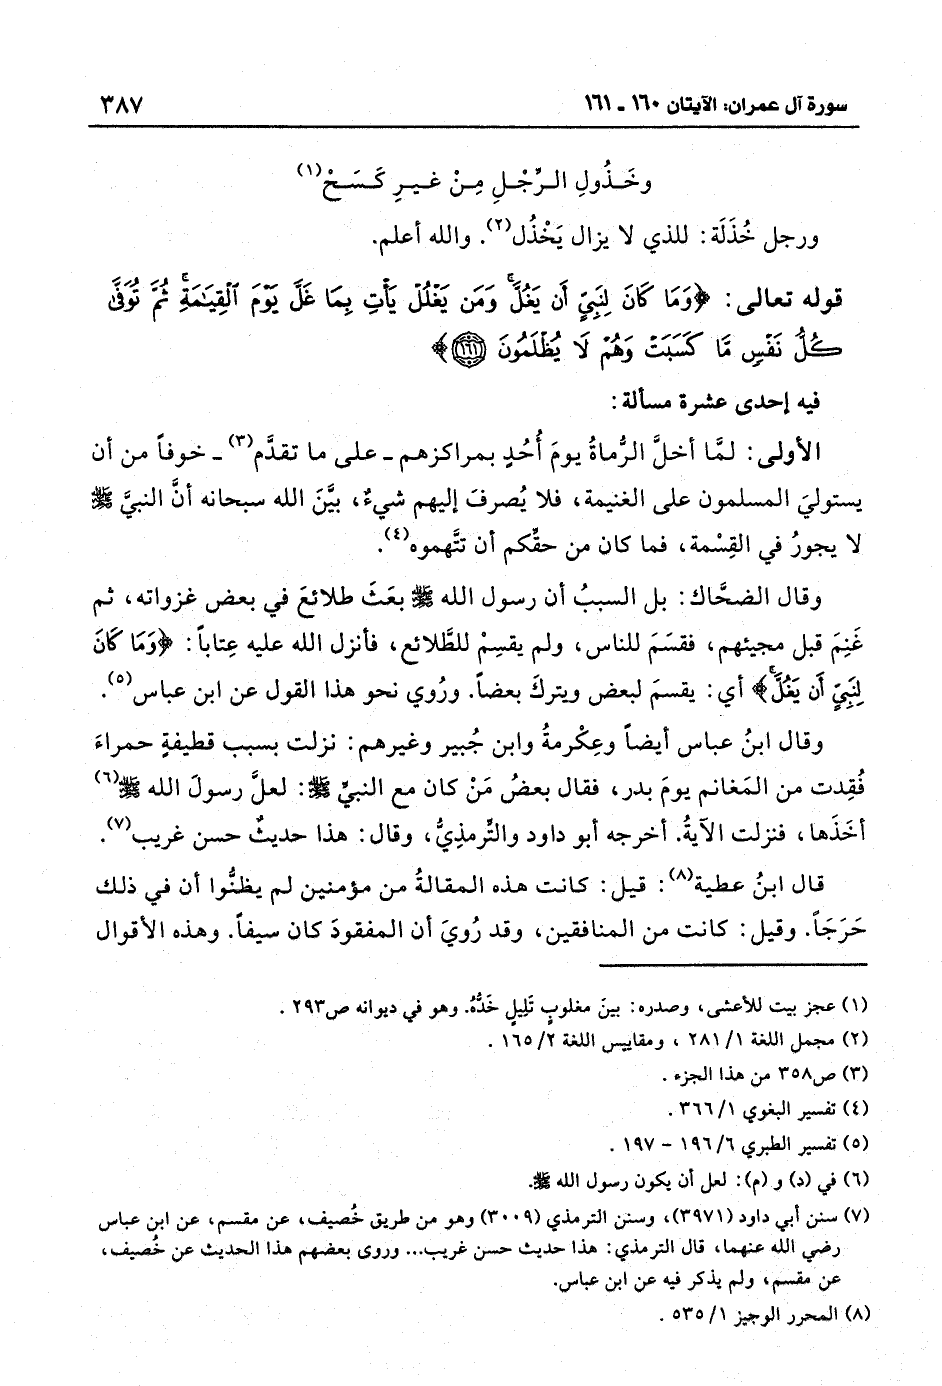 سورة آل عمران: الآيتان ١٦٠ ـ ١٦١ ٣٨٧
وخَـذُولِ الـرِّجْـلِ مِـنْ غـيـرِ كَـسَـحْ(١)
ورجل خُذَلَة: للذي لا يزال يَخْذُل(٢). والله أعلم.
قوله تعالى: ﴿وَمَا كَانَ لِنَبِيٍّ أَن يَغُلَّۚ وَمَن يَغْلُلْ يَأْتِ بِمَا غَلَّ يَوْمَ ٱلْقِيَٰمَةِۚ ثُمَّ تُوَفَّىٰ
كُلُّ نَفْسٍ مَّا كَسَبَتْ وَهُمْ لَا يُظْلَمُونَ ١٦١﴾
فيه إحدى عشرة مسألة:
الأولى: لمَّا أخلَّ الرُّماةُ يومَ أُحُدٍ بمراكزهم ـ على ما تقدَّم(٣) ـ خوفاً من أن
يستوليَ المسلمون على الغنيمة، فلا يُصرفَ إليهم شيءٌ، بيَّنَ الله سبحانه أنَّ النبيَّ ﷺ
لا يجورُ في القِسْمة، فما كان من حقِّكم أن تتَّهموه(٤).
وقال الضحَّاك: بل السببُ أن رسول الله ﷺ بعَثَ طلائعَ في بعض غزواته، ثم
غَنِمَ قبل مجيئهم، فقسَمَ للناس، ولم يقسِمْ للطَّلائع، فأنزل الله عليه عِتاباً: ﴿وَمَا كَانَ
لِنَبِيٍّ أَن يَغُلَّۚ﴾ أي: يقسمَ لبعض ويتركَ بعضاً. ورُوي نحو هذا القول عن ابن عباس(٥).
وقال ابنُ عباس أيضاً وعِكْرمةُ وابن جُبير وغيرهم: نزلت بسبب قطيفةٍ حمراءَ
فُقِدت من المَغانم يومَ بدر، فقال بعضُ مَنْ كان مع النبيِّ ﷺ: لعلَّ رسولَ الله ﷺ(٦)
أخَذَها، فنزلت الآيةُ. أخرجه أبو داود والتِّرمذيُّ، وقال: هذا حديثٌ حسن غريب(٧).
قال ابنُ عطية(٨): قيل: كانت هذه المقالةُ من مؤمنين لم يظنُّوا أن في ذلك
حَرَجَاً. وقيل: كانت من المنافقين، وقد رُويَ أن المفقودَ كان سيفاً. وهذه الأقوال
(١) عجز بيت للأعشى، وصدره: بينَ مغلوبٍ تَلِيلٍ خَدُّهُ. وهو في ديوانه ص٢٩٣ .
(٢) مجمل اللغة ١/ ٢٨١ ، ومقاييس اللغة ٢/ ١٦٥ .
(٣) ص٣٥٨ من هذا الجزء .
(٤) تفسير البغوي ١/ ٣٦٦ .
(٥) تفسير الطبري ٦/ ١٩٦ - ١٩٧ .
(٦) في (د) و (م): لعل أن يكون رسول الله ﷺ.
(٧) سنن أبي داود (٣٩٧١)، وسنن الترمذي (٣٠٠٩) وهو من طريق خُصيف، عن مقسم، عن ابن عباس
رضي الله عنهما، قال الترمذي: هذا حديث حسن غريب... وروى بعضهم هذا الحديث عن خُصيف،
عن مقسم، ولم يذكر فيه عن ابن عباس.
(٨) المحرر الوجيز ١/ ٥٣٥ .